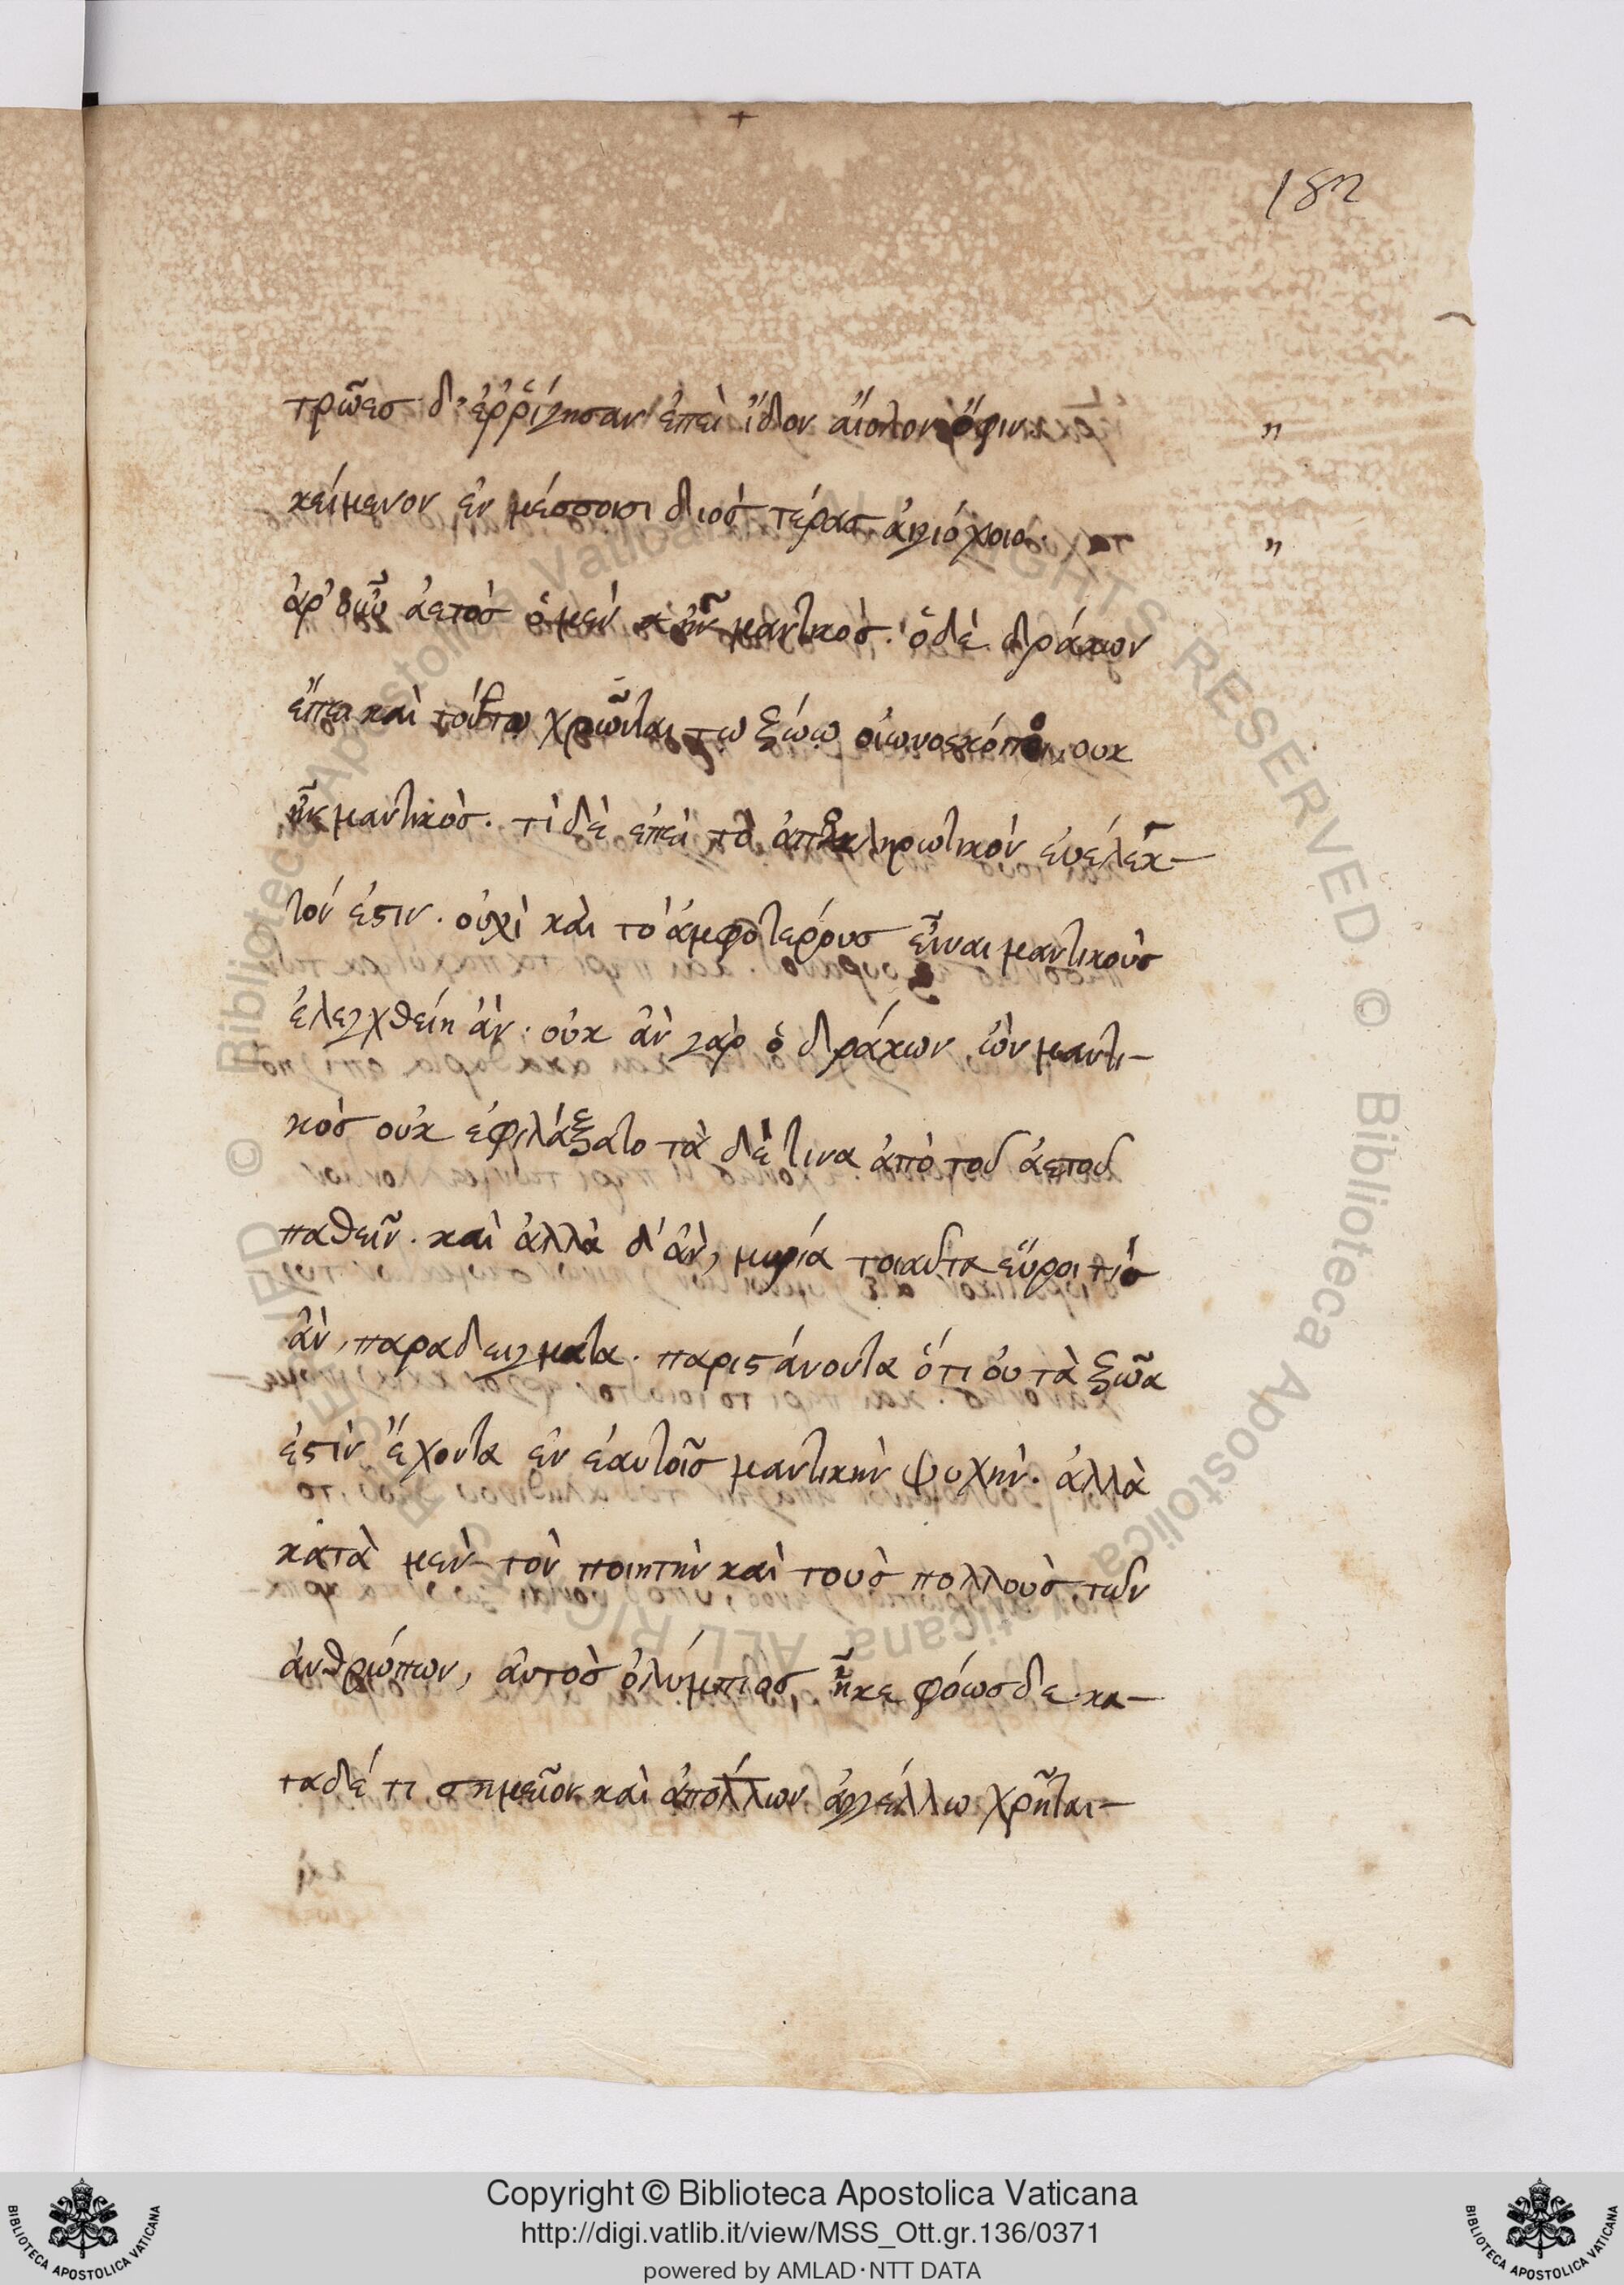 182
τρῶεσ δ' ἐρῥίγησαν ἐπεὶ ἴδον ἄιολον ὄφιν
κείμενον ἐν μέσσοισι διὸσ τέρασ ἀιγιόχοιο.
ἀρ' οὖν ἀετὸσ ὁ μὲν ἦν μαντικόσ. ὁ δὲ δράκων
ἔπει καὶ τούτω χρῶνται τω ζώω οἰωνοσκόποι, ουκ
ἦν μαντικὸσ. τί δὲ ἐπεὶ τὸ ἀποκληρωτικὸν ἐυέλεγκ–
τόν ἐστιν. οὐχὶ καὶ τὸ ἀμφοτέρουσ εἶναι μαντικοὺσ
ἐλεγχθείη ἀν. οὐκ ἂν γαρ ὁ δράκων ὢν μαντι–
κὸσ ουκ ἐφυλάξατο τὰ δέ τινα ἀπὸ τοῦ ἀετοῦ
παθεῖν. καὶ ἀλλὰ δ' ἂν, μυρία τοιαῦτα εὕροι τὶσ
ἂν, παραδειγματα. παριστάνοντα ὁτι ὀυ τὰ ζῶα
ἐστὶν ἔχοντα ἐν ἑαυτοῖσ μαντικὴν ψυχὴν. ἀλλὰ
κατὰ μεν τὸν ποιητὴν καὶ τουσ πολλοὺσ τῶν
ἀνθρώπων, ἀυτὸσ ὀλύμπιοσ ἧκε φόωσ δε κα–
τα δέ τι σημεῖον καὶ ἀπόλλων ἀγγέλλω χρῆται–
Copyright © Biblioteca Apostolica Vaticana
http://digi.vatlib.it/view/MSS_Ott.gr.136/0371
powered by AMLAD·NTT DATA